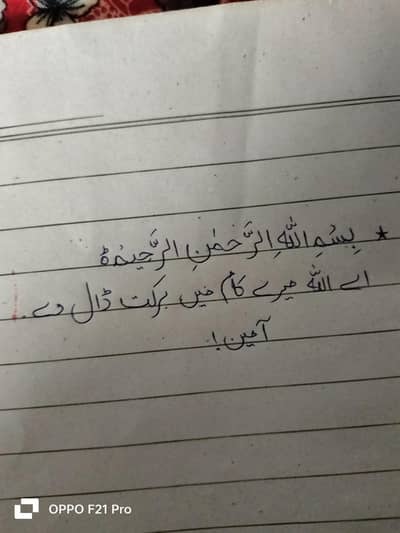 ★ بِسْمِ اللّٰهِ الرَّحْمٰنِ الرَّحِيْمِ ○
اے اللّٰه میرے کام میں برکت ڈال دے۔
آمین!
OPPO F21 Pro